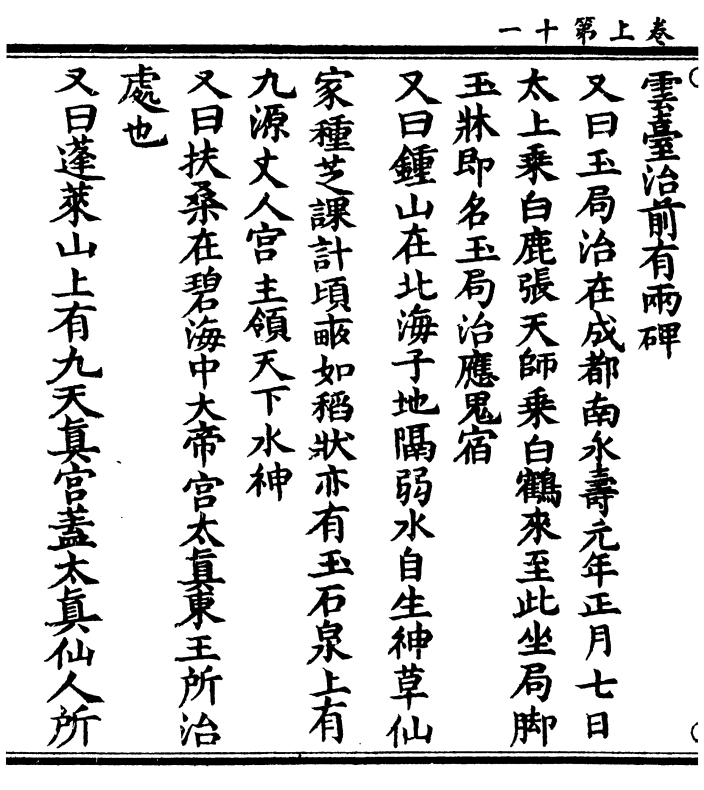 卷上第十一
雲臺治前有兩碑
又曰玉局治在成都南永壽元年正月七日
太上乗白鹿張天師乗白鶴來至此坐局脚
玉牀即名玉局治應鬼宿
又曰鍾山在北海子地隔弱水自生神草仙
家種芝課計頃畝如稻狀亦有玉石泉上有
九源丈人宫主領天下水神
又曰扶桑在碧海中大帝宫太真東王所治
處也
又曰蓬萊山上有九天真宫蓋太真仙人所